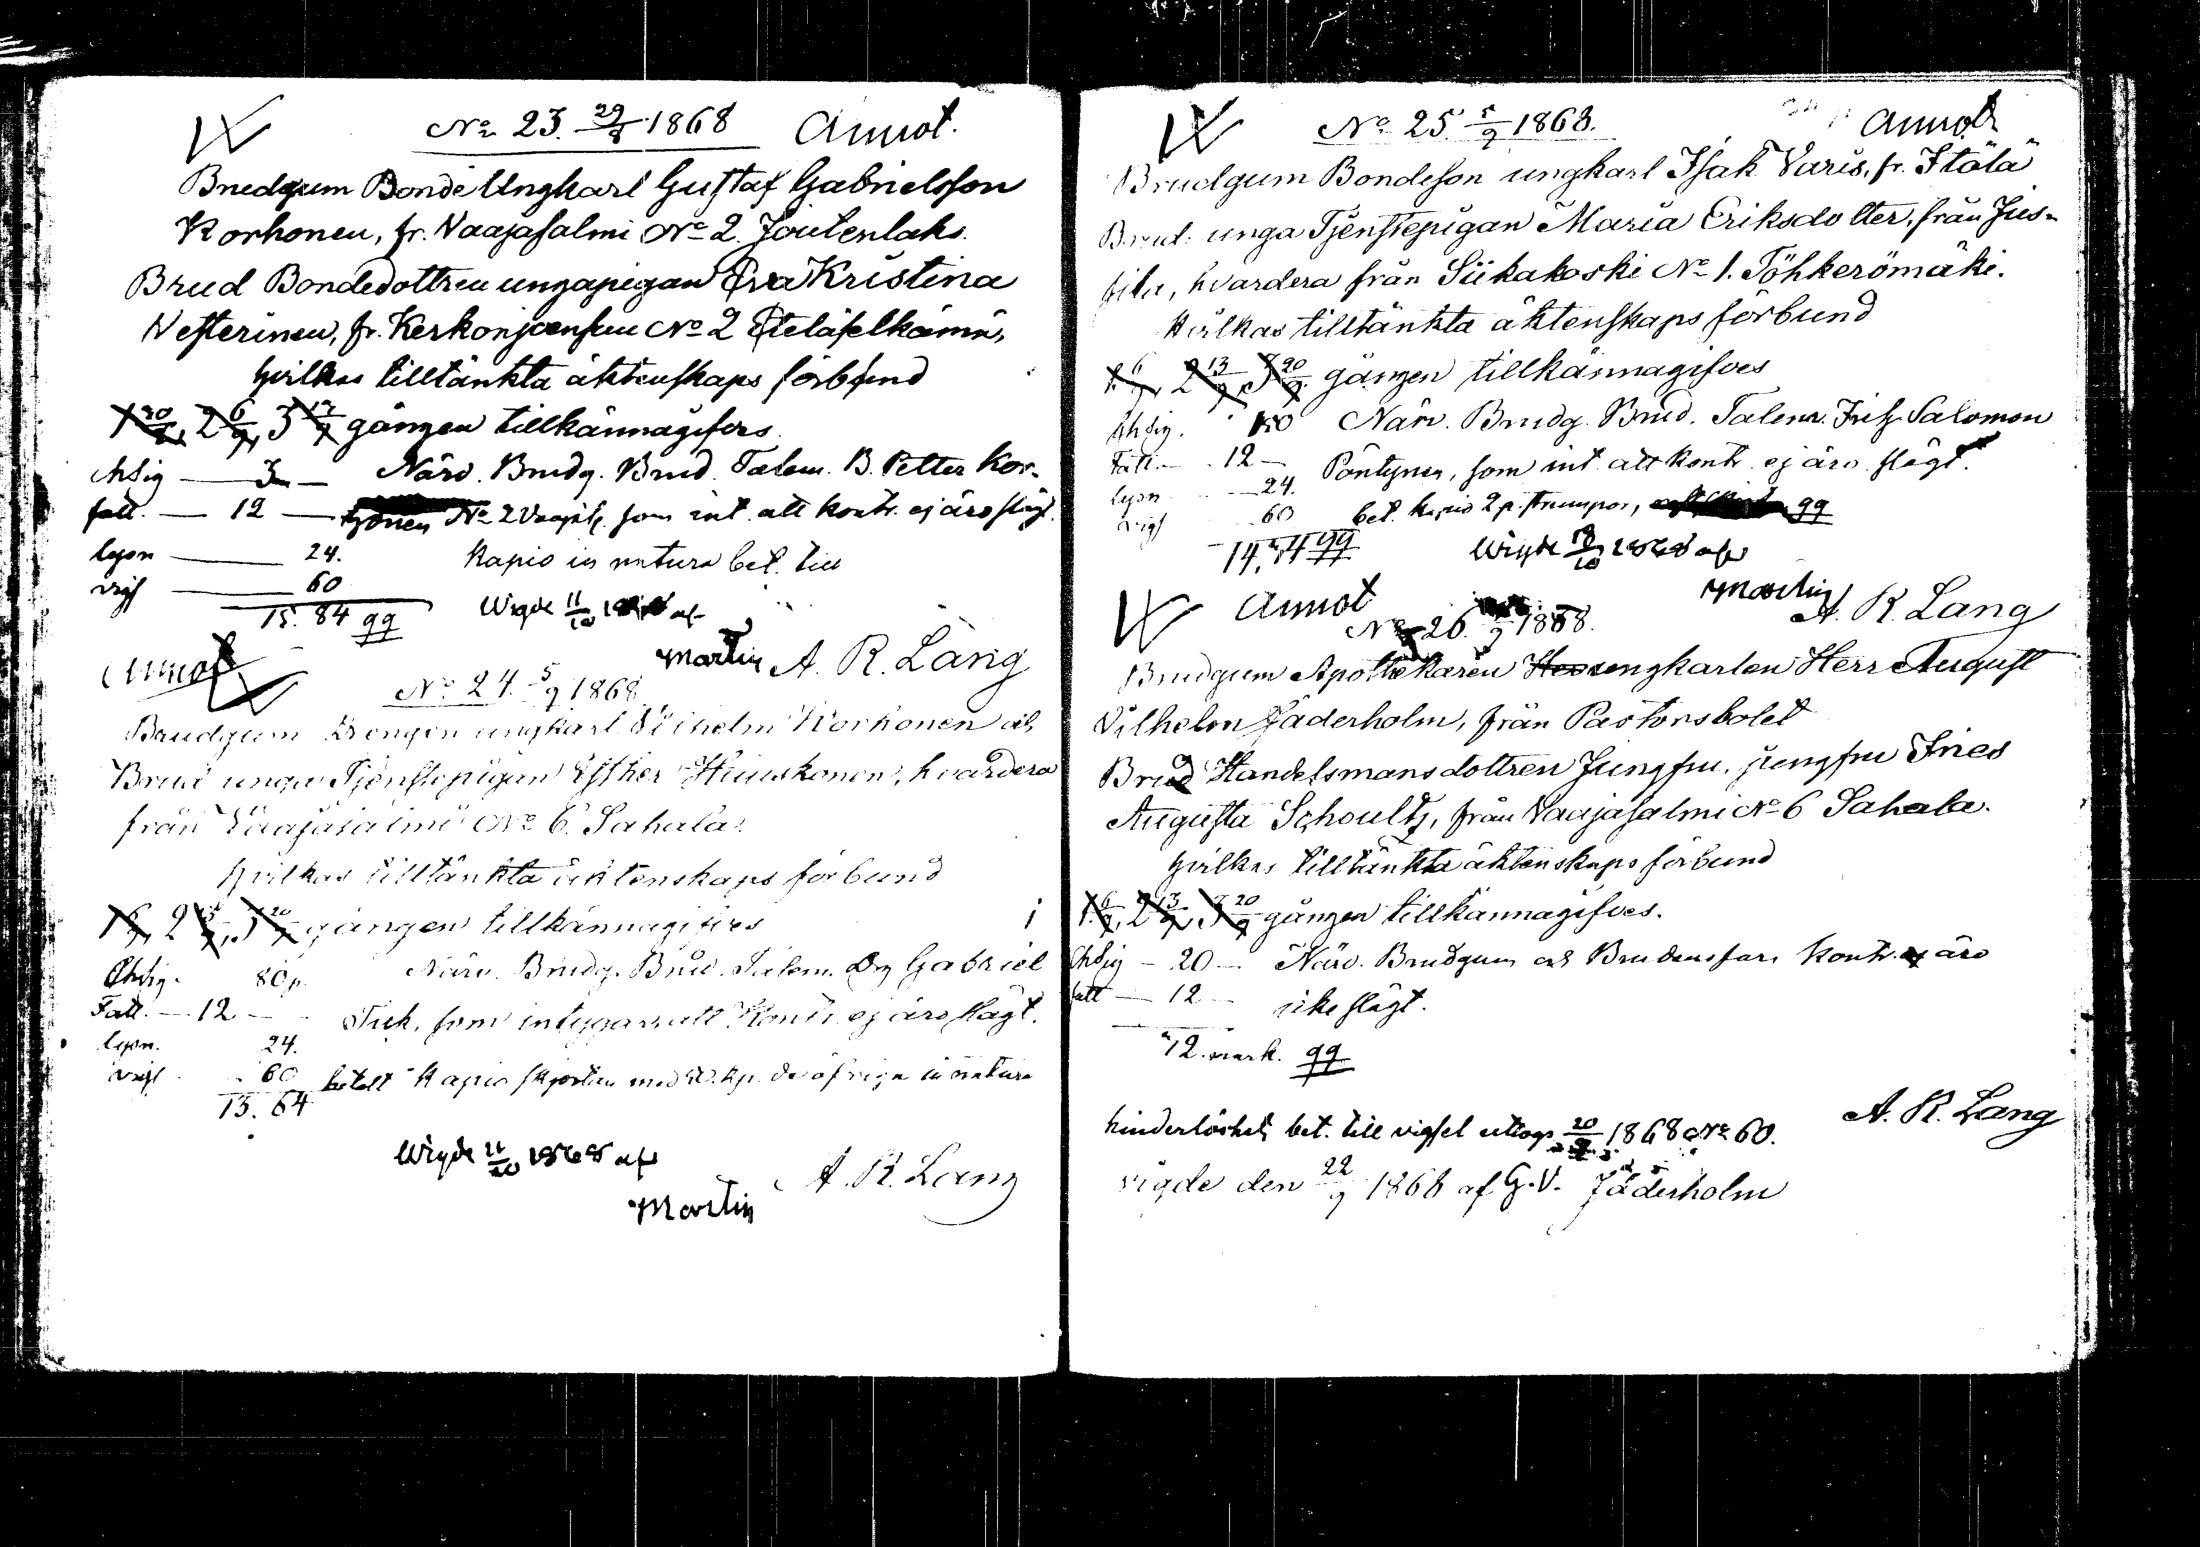 No 23. 29/8 1868 Annot.
Brudgum Bonde Ungkarl Gustaf Gabrielsson
Korhonen, fr. Vaajasalmi No 2. Joutenlaks.
Brud Bondedottren ungapigan Eva Kristina
Vesterinen, fr. Kerkonjoensuu No 2 Eteläselkämä,
hvilkas tilltänkta äktenskaps förbund
1 30/8, 2 6/9, 3 13/9 gången tillkännagifves
Chsig — 3 — Närv. Brudg. Brud. Talem. B. Petter Kor-
fatt. — 12 — honen No 2 Vaajas. som int. att kontr. ej äro slägt.
lysn — 24. Kapio in natura bet. till
vigs — 60
15. 84 gg Wigde 11/10 1868 af
Martin A. R. Lang
Annot
No 24. 5/9 1868
Brudgum Drengen ungkarl Vilhelm Korhonen och
Brud unga Tjenstepigan Esther Huuskonen, hvardera
från Vaajasalmi No 6. Sahala.
hvilkas tilltänkta äktenskaps förbund
1 6/9, 2 13/9, 3 20/9 gången tillkännagifves
Chsig. 80 p. Närv. Brudg. Brud. Talem. Dr Gabriel
Fatt. — 12 — Tick, som intygar att Kontr. ej äro slägt.
lysn. 24.
vigs 60 betalt Kapio skjortan med 50. kp. de öfriga in natura
13. 64
Wigde 11/10 1868 af
Martin A. R. Lang
No 25. 5/9 1868. Annot
Brudgum Bondeson ungkarl Isak Varis, fr. Itälä
Brud. unga Tjenstepigan Maria Eriksdotter, från Jus-
sila, hvardera från Siikakoski No 1. Töhkerömäki.
hvilkas tilltänkta äktenskaps förbund
1 6/9, 2 13/9, 3 20/9 gången tillkännagifves
Chsig. Närv. Brudg. Brud. Talem. Salomon
Fatt. — 12 — Pöntynen, som int. att kontr. ej äro slägt.
lysn — 24.
vigs 60 bet. kapio 2 p. strumpor, gg
14, gg Wigde 1868 af
Martin A. R. Lang
Annot
No 26. /9 1868.
Brudgum Apothekaren ungkarlen Herr August
Vilhelm Jäderholm, från Pastorsbolet
Brud Handelsmansdottren Jungfru, jungfru Ines
Augusta Schoultz, från Vaajasalmi No 6 Sahala.
hvilkas tilltänkta äktenskaps förbund
1 6/9, 2 13/9, 3 20/9 gången tillkännagifves.
Chsig — 20 — Närv. Brudgum och Brudens far, Kontr. äro
fatt — 12 — icke slägt.
12. mark. gg
A. R. Lang
hinderlöshets bet. till vigsel uttogs 20/9 1868 No 60.
vigde den 22/9 1868 af G. V. Jäderholm